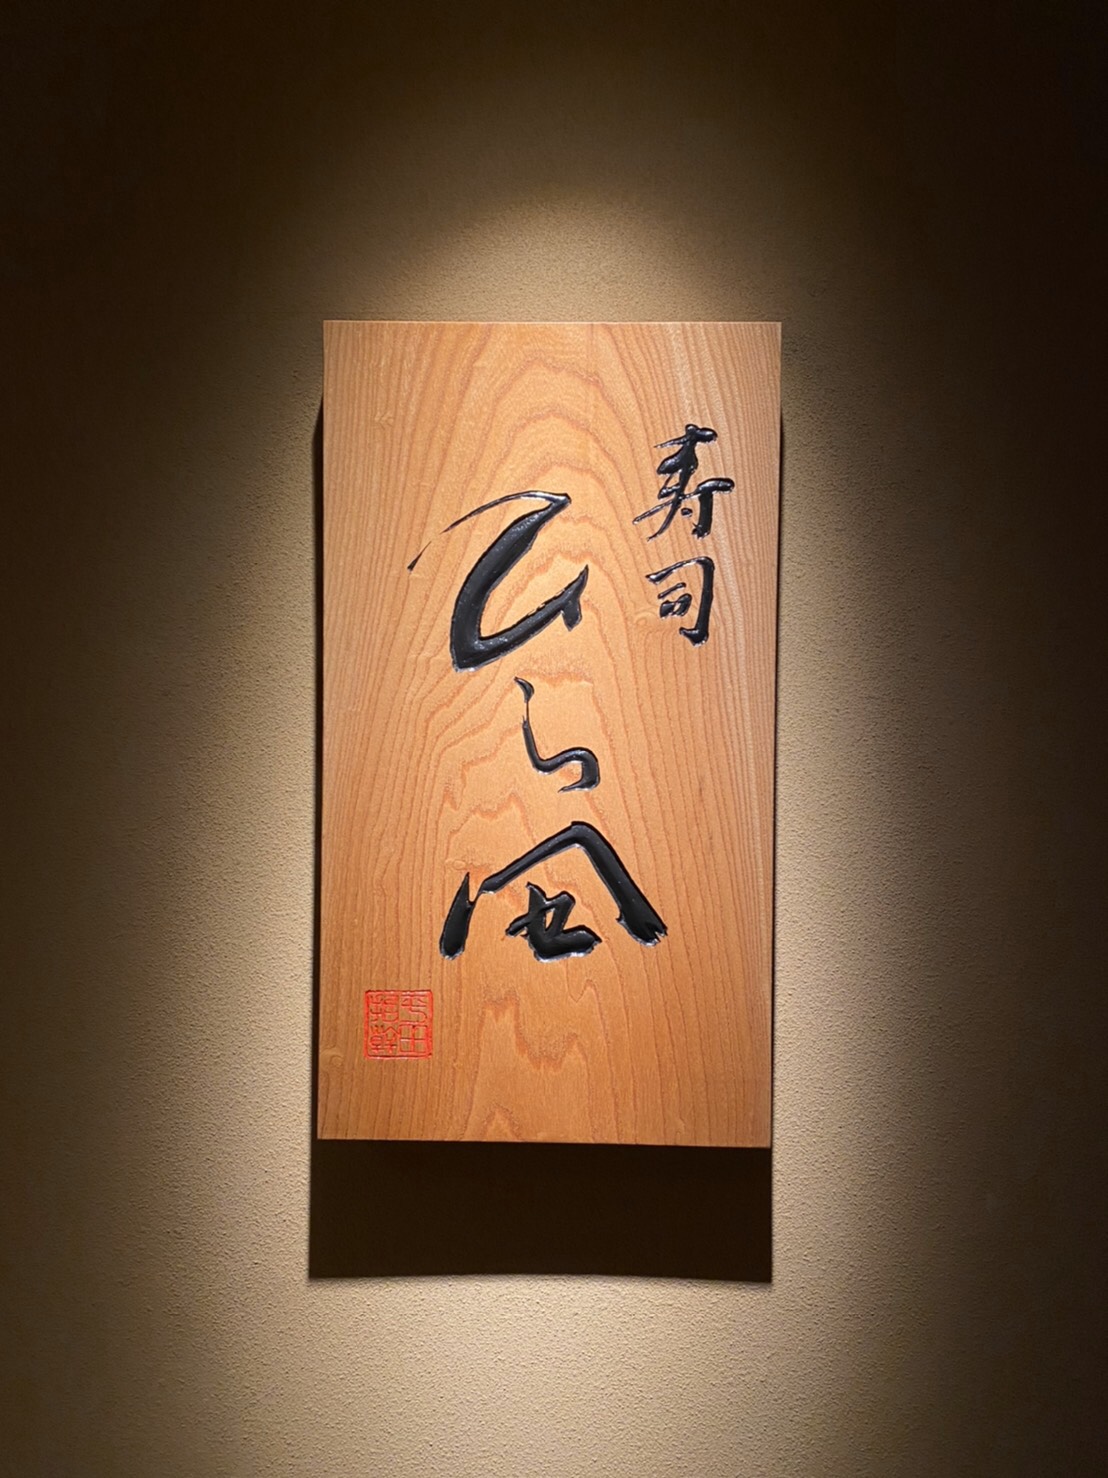 寿司
ひら凪